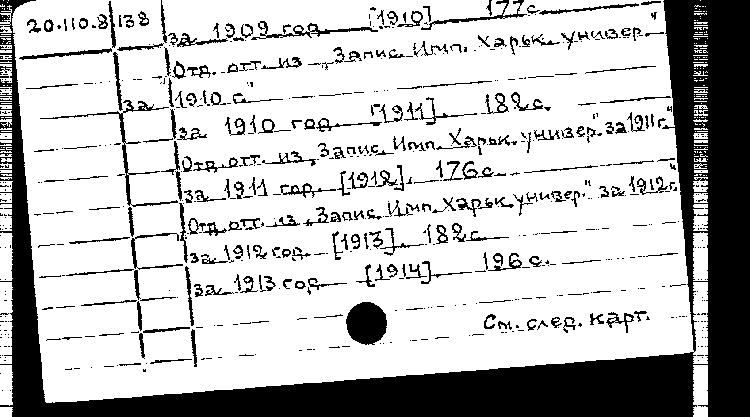 20.110.8/138
за 1909 год. [1910] 177с.
Отд. отт. из „Запис. Имп. Харьк. универ."
за 1910 г."
за 1910 год. [1911]. 182с.
Отд. отт. из „Запис. Имп. Харьк. универ." за 1911г."
за 1911 год. [1912]. 176с.
Отд. отт. из „Запис. Имп. Харьк. универ." за 1912г."
за 1912 год. [1913]. 182с.
за 1913 год. [1914]. 196 с.
См. след. карт.